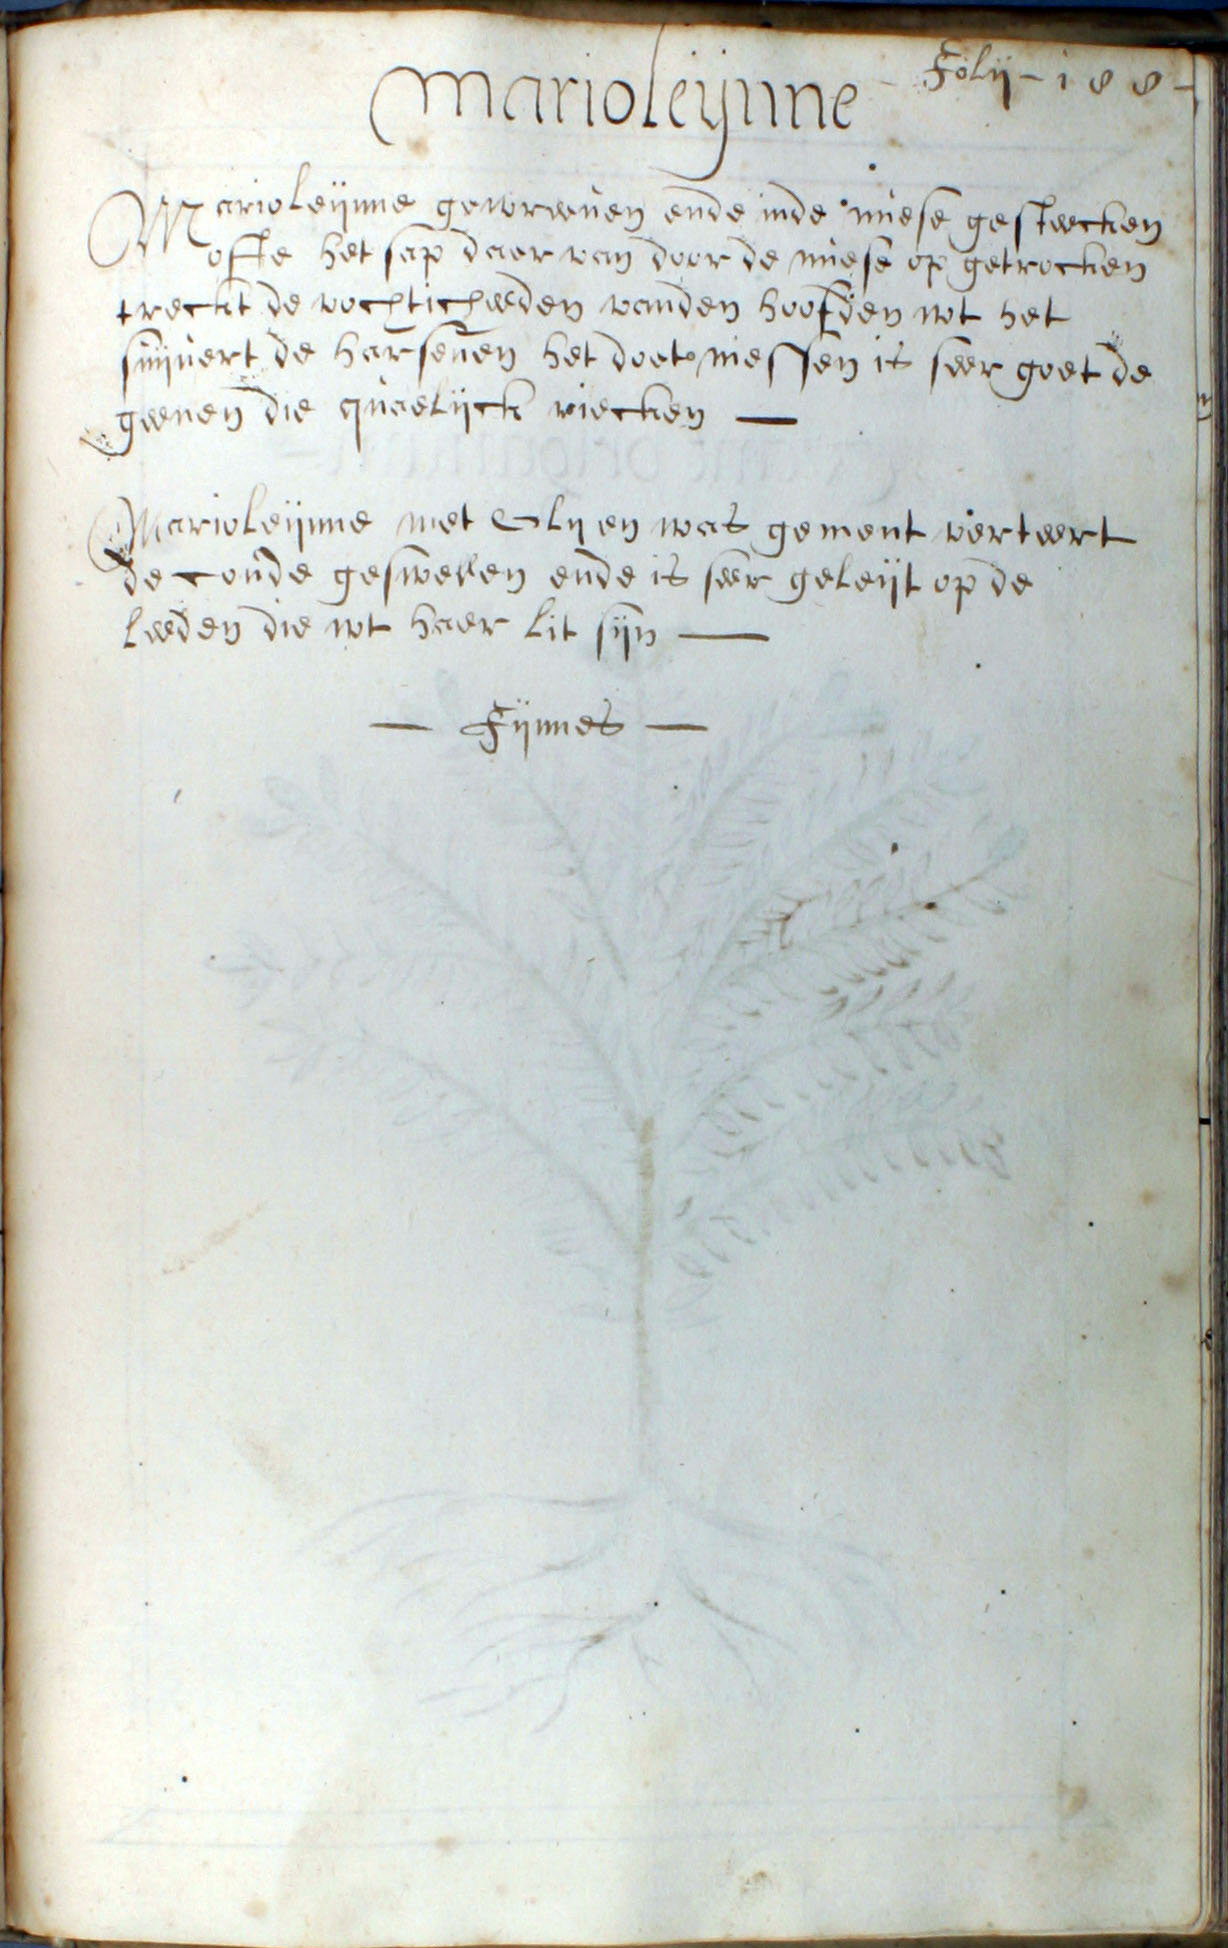 Folij - 188 -
Marioleijnne
Marioleijnne gewreeuen ende inde nuese gesteecken
ofte het sap daer van door de nuese op getrocken
treckt de vochticheeden vanden hoofden wt het
suijuert de harsenen het doet niessen is seer goet de
geenen die qualijck riecken —
Marioleijnne met Olij en was gement verteert
de coude geswellen ende is seer geleijt op de
leeden die wt haer lit sijn —
— Fijnnes —